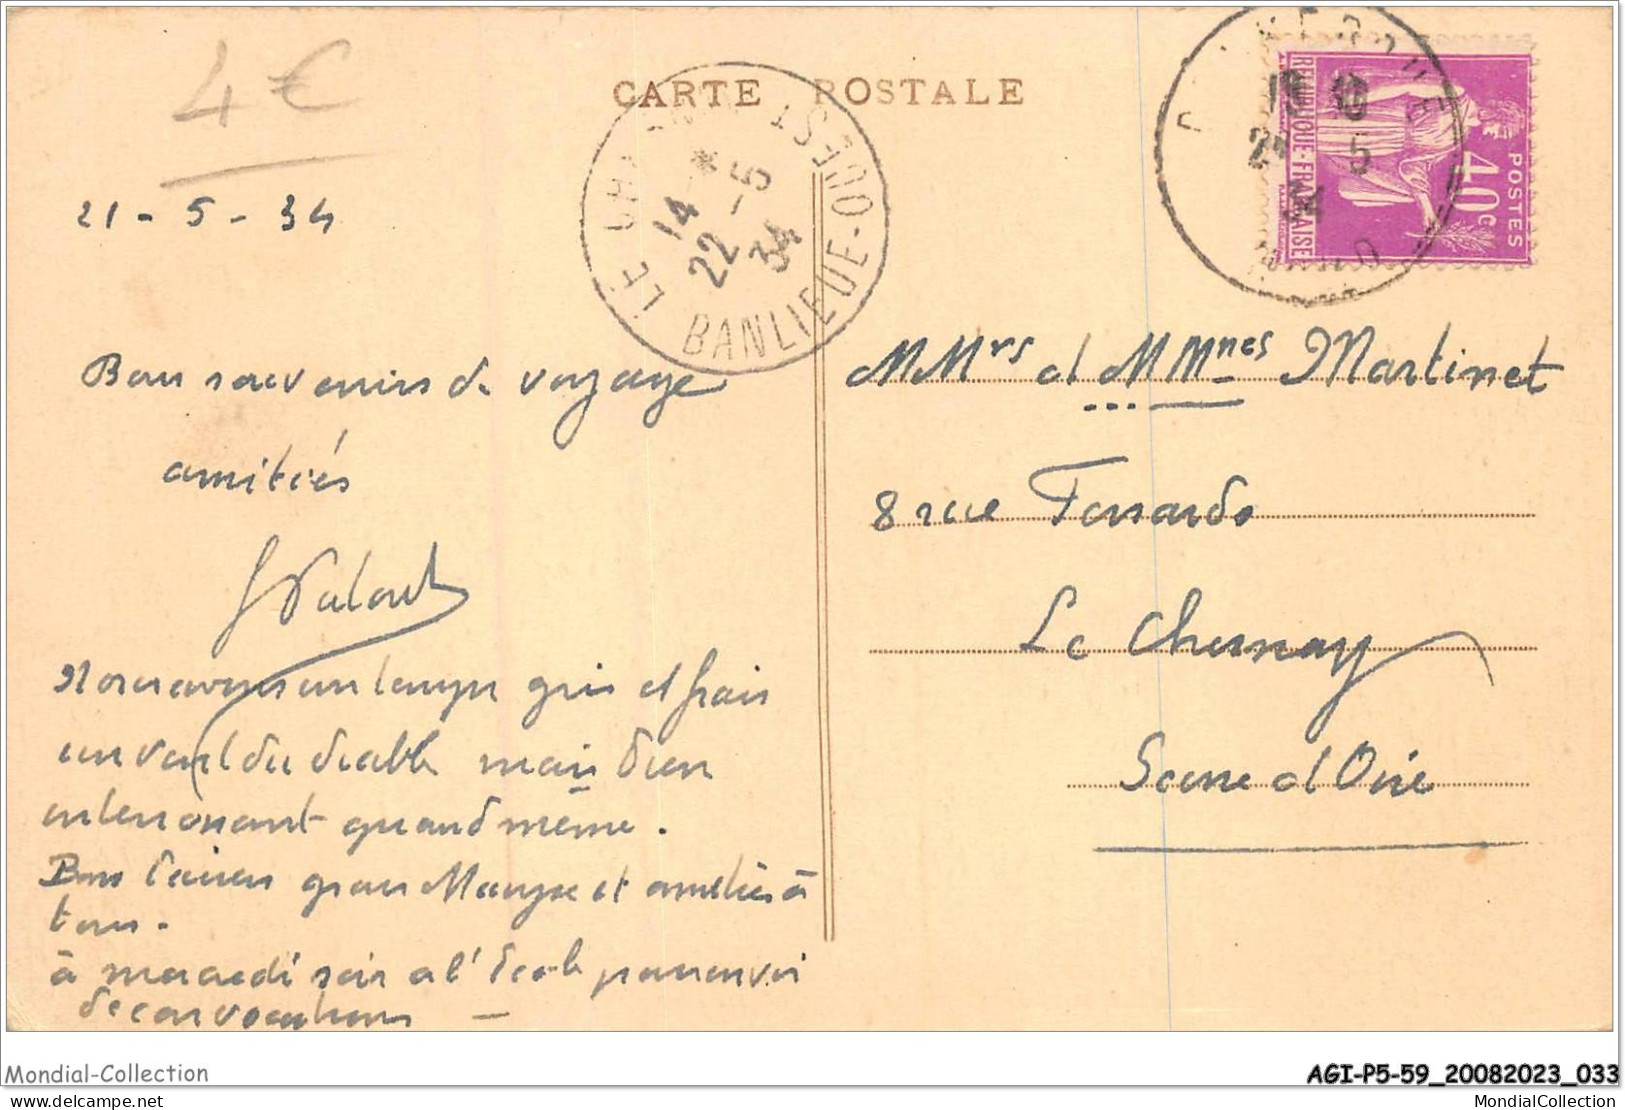 4€
CARTE POSTALE
21 - 5 - 34
OUEST
BANLIEUE
14 - *
22 - 5
34
5
34
REPUBLIQUE-FRANÇAISE
40c
POSTES
Bons souvenirs de voyage
amitiés
MMrs et MMmes Martinet
8 rue
Le Chesnay
Seine et Oise
Nous avons un temps gris et frais
un vent du diable mais bien
intéressant quand même.
Bons baisers gros et amitiés à
tous.
à mercredi soir à l'École pour envoi
de convocations
Mondial-Collection
AGI-P5-59_20082023_033
delcampe.net
MondialCollection